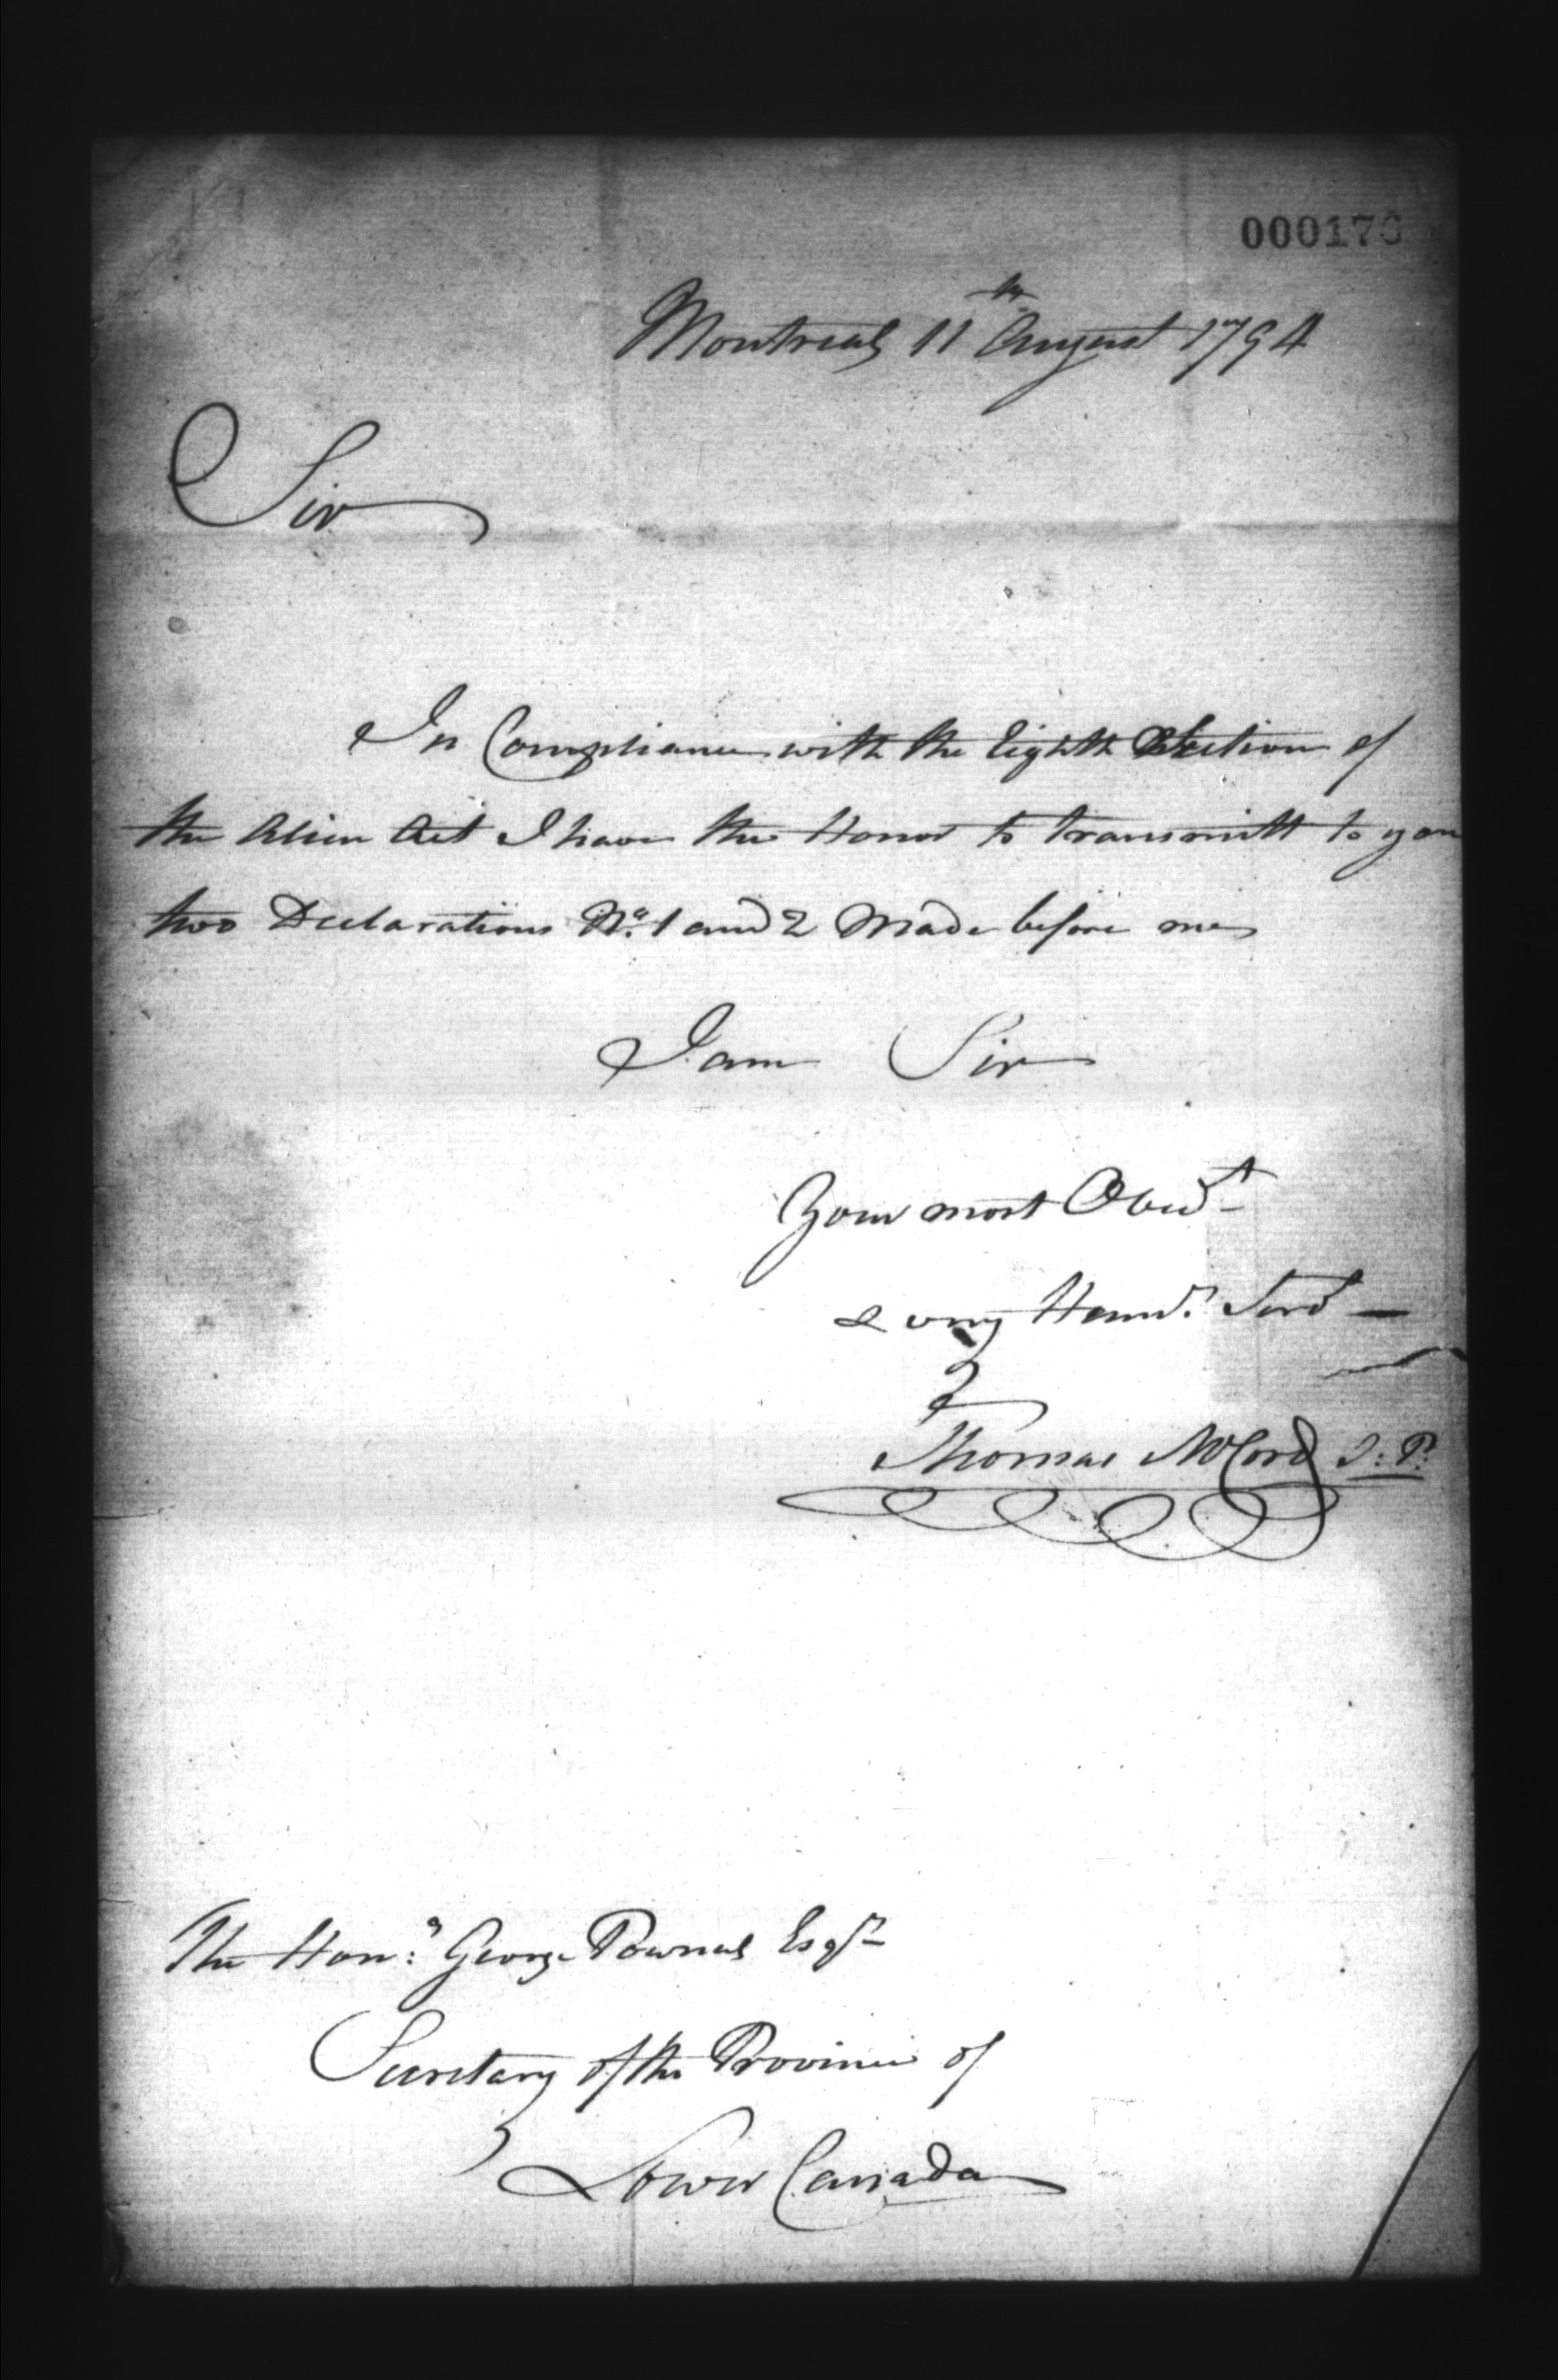 000176
Montreal 11th August 1794
Sir
In Compliance with the Eighth Section of
the Alien Act I have the Honor to transmitt to you
two Declarations No. 1 and 2 Made before me
I am Sir
Your most Obedt
& very Hume. Servt
Thomas McCord J: P:
The Hon:e George Pownal Esqr
Secretary of the Province of
Lower Canada